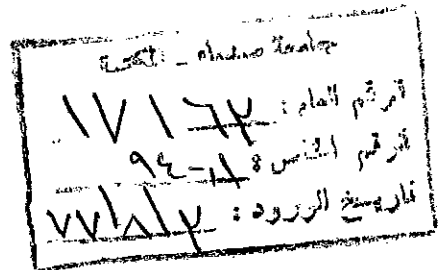 جامعة صنعاء - المكتبة
الرقم العام: ١٧١٦٢
الرقم الخاص:
تاريخ الورود: ٧٧/٨/٢